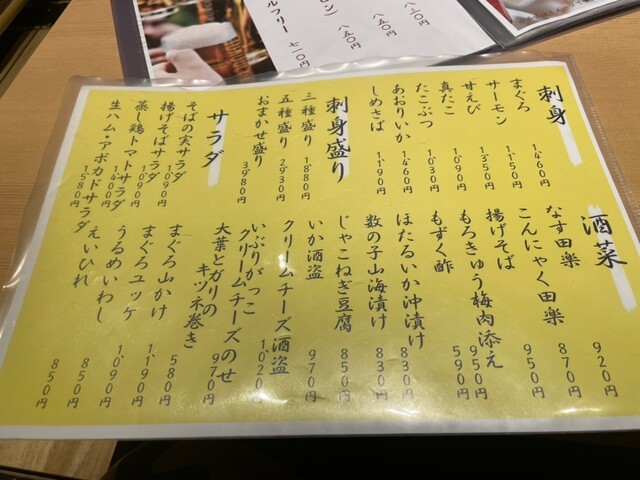 刺身
まぐろ 1,460円
サーモン 1,150円
甘えび 1,350円
真だこ 1,090円
たこぶつ 1,030円
あおりいか 1,460円
しめさば 1,190円
刺身盛り
三種盛り 1,880円
五種盛り 2,930円
おまかせ盛り 3,980円
サラダ
そばの実サラダ 1,090円
揚げそばサラダ 1,090円
蒸し鶏トマトサラダ 1,400円
生ハム・アボカドサラダ 1,580円
酒菜
なす田楽 920円
こんにゃく田楽 870円
揚げそば 950円
もろきゅう梅肉添え 950円
もずく酢 590円
ほたるいか沖漬け 830円
数の子山海漬け 830円
じゃこねぎ豆腐 850円
いか酒盗 970円
クリームチーズ酒盗 1,020円
いぶりがっこ
クリームチーズのせ 970円
大葉とガリの
キツネ巻き 580円
まぐろ山かけ 1,190円
まぐろユッケ 1,090円
うるめいわし 850円
えいひれ 850円
八二〇円
八五〇円
ン) 八五〇円
ルフリー 七二〇円